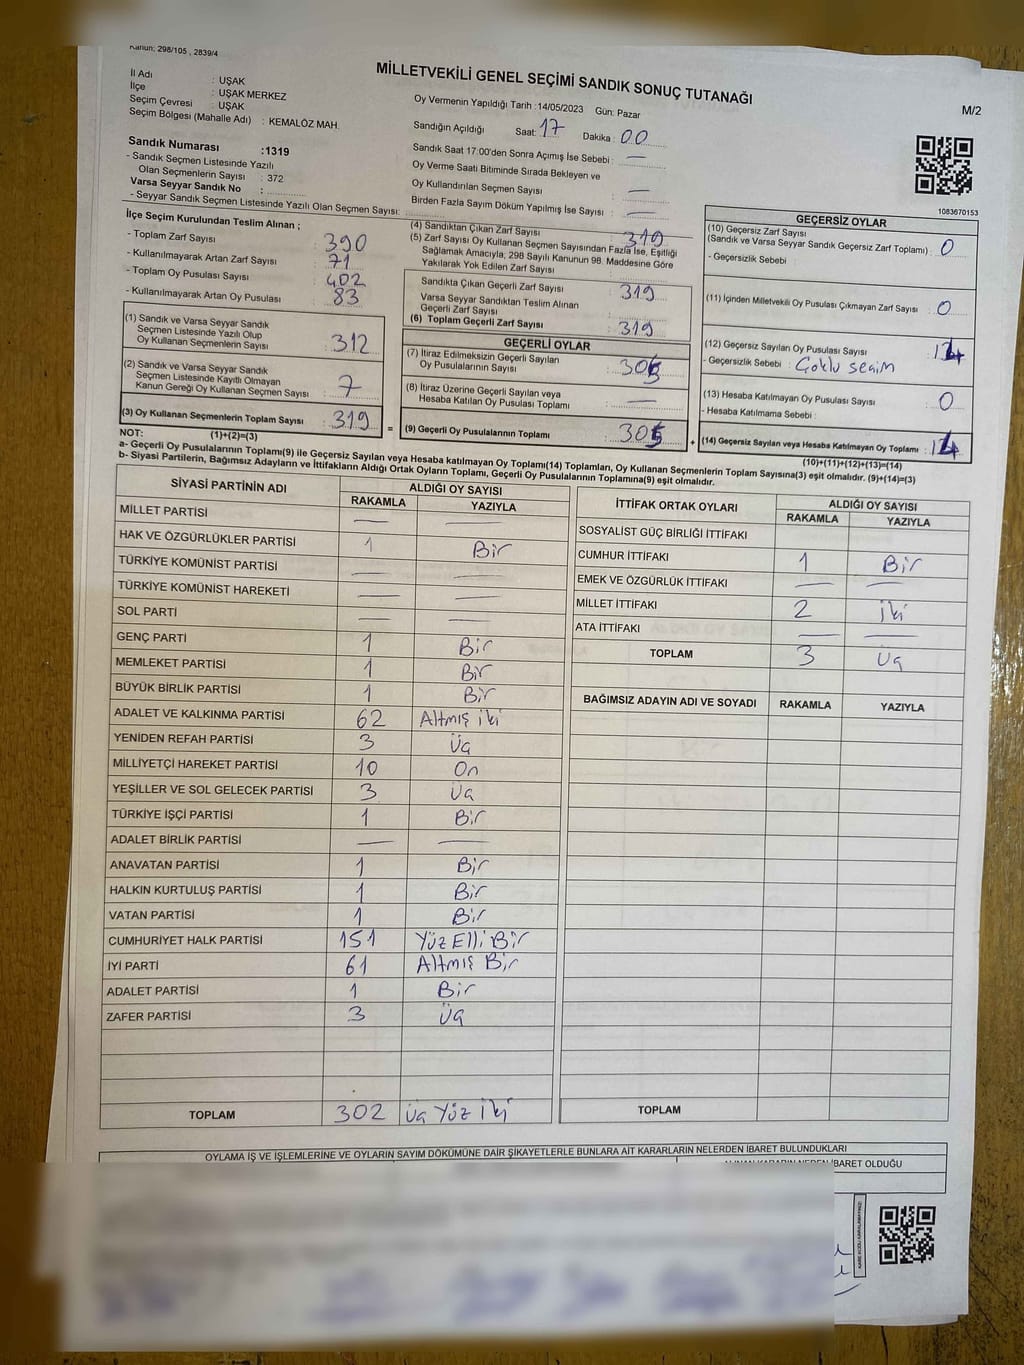 Kanun; 298/105 , 2839/4
MİLLETVEKİLİ GENEL SEÇİMİ SANDIK SONUÇ TUTANAĞI
M/2
İl Adı : UŞAK
İlçe : UŞAK MERKEZ
Seçim Çevresi : UŞAK
Seçim Bölgesi (Mahalle Adı) : KEMALÖZ MAH.
Sandık Numarası :1319
- Sandık Seçmen Listesinde Yazılı
Olan Seçmenlerin Sayısı : 372
Varsa Seyyar Sandık No :
- Seyyar Sandık Seçmen Listesinde Yazılı Olan Seçmen Sayısı:
Oy Vermenin Yapıldığı Tarih :14/05/2023 Gün: Pazar
Sandığın Açıldığı Saat: 17 Dakika : 00
Sandık Saat 17:00'den Sonra Açımış İse Sebebi : —
Oy Verme Saati Bitiminde Sırada Bekleyen ve
Oy Kullandırılan Seçmen Sayısı : —
Birden Fazla Sayım Döküm Yapılmış İse Sayısı : —
1083670153
İlçe Seçim Kurulundan Teslim Alınan ;
- Toplam Zarf Sayısı : 390
- Kullanılmayarak Artan Zarf Sayısı : 71
- Toplam Oy Pusulası Sayısı : 402
- Kullanılmayarak Artan Oy Pusulası : 83
(1) Sandık ve Varsa Seyyar Sandık
Seçmen Listesinde Yazılı Olup
Oy Kullanan Seçmenlerin Sayısı : 312
(2) Sandık ve Varsa Seyyar Sandık
Seçmen Listesinde Kayıtlı Olmayan
Kanun Gereği Oy Kullanan Seçmen Sayısı : 7
(3) Oy Kullanan Seçmenlerin Toplam Sayısı : 319
(4) Sandıktan Çıkan Zarf Sayısı : 319
(5) Zarf Sayısı Oy Kullanan Seçmen Sayısından Fazla İse, Eşitliği
Sağlamak Amacıyla, 298 Sayılı Kanunun 98. Maddesine Göre
Yakılarak Yok Edilen Zarf Sayısı :
Sandıkta Çıkan Geçerli Zarf Sayısı : 319
Varsa Seyyar Sandıktan Teslim Alınan
Geçerli Zarf Sayısı :
(6) Toplam Geçerli Zarf Sayısı : 319
GEÇERLİ OYLAR
(7) İtiraz Edilmeksizin Geçerli Sayılan
Oy Pusulalarının Sayısı :
(8) İtiraz Üzerine Geçerli Sayılan veya
Hesaba Katılan Oy Pusulası Toplamı : —
(9) Geçerli Oy Pusulalarının Toplamı :
GEÇERSİZ OYLAR
(10) Geçersiz Zarf Sayısı
(Sandık ve Varsa Seyyar Sandık Geçersiz Zarf Toplamı) : 0
- Geçersizlik Sebebi :
(11) İçinden Milletvekili Oy Pusulası Çıkmayan Zarf Sayısı : 0
(12) Geçersiz Sayılan Oy Pusulası Sayısı :
- Geçersizlik Sebebi : Çoklu seçim
(13) Hesaba Katılmayan Oy Pusulası Sayısı : 0
- Hesaba Katılmama Sebebi :
(14) Geçersiz Sayılan veya Hesaba Katılmayan Oy Toplamı :
NOT: (1)+(2)=(3)
(10)+(11)+(12)+(13)=(14)
a- Geçerli Oy Pusulalarının Toplamı(9) ile Geçersiz Sayılan veya Hesaba katılmayan Oy Toplamı(14) Toplamları, Oy Kullanan Seçmenlerin Toplam Sayısına(3) eşit olmalıdır. (9)+(14)=(3)
b- Siyasi Partilerin, Bağımsız Adayların ve İttifakların Aldığı Ortak Oyların Toplamı, Geçerli Oy Pusulalarının Toplamına(9) eşit olmalıdır.
SİYASİ PARTİNİN ADI ALDIĞI OY SAYISI
RAKAMLA YAZIYLA
MİLLET PARTİSİ — —
HAK VE ÖZGÜRLÜKLER PARTİSİ 1 Bir
TÜRKİYE KOMÜNİST PARTİSİ — —
TÜRKİYE KOMÜNİST HAREKETİ — —
SOL PARTİ — —
GENÇ PARTİ 1 Bir
MEMLEKET PARTİSİ 1 Bir
BÜYÜK BİRLİK PARTİSİ 1 Bir
ADALET VE KALKINMA PARTİSİ 62 Altmış iki
YENİDEN REFAH PARTİSİ 3 Üç
MİLLİYETÇİ HAREKET PARTİSİ 10 On
YEŞİLLER VE SOL GELECEK PARTİSİ 3 Üç
TÜRKİYE İŞÇİ PARTİSİ 1 Bir
ADALET BİRLİK PARTİSİ — —
ANAVATAN PARTİSİ 1 Bir
HALKIN KURTULUŞ PARTİSİ 1 Bir
VATAN PARTİSİ 1 Bir
CUMHURİYET HALK PARTİSİ 151 Yüz Elli Bir
İYİ PARTİ 61 Altmış Bir
ADALET PARTİSİ 1 Bir
ZAFER PARTİSİ 3 Üç
TOPLAM 302 Üç Yüz iki
İTTİFAK ORTAK OYLARI ALDIĞI OY SAYISI
RAKAMLA YAZIYLA
SOSYALİST GÜÇ BİRLİĞİ İTTİFAKI
CUMHUR İTTİFAKI 1 Bir
EMEK VE ÖZGÜRLÜK İTTİFAKI — —
MİLLET İTTİFAKI 2 iki
ATA İTTİFAKI — —
TOPLAM 3 Üç
BAĞIMSIZ ADAYIN ADI VE SOYADI RAKAMLA YAZIYLA
TOPLAM
OYLAMA İŞ VE İŞLEMLERİNE VE OYLARIN SAYIM DÖKÜMÜNE DAİR ŞİKAYETLERLE BUNLARA AİT KARARLARIN NELERDEN İBARET BULUNDUKLARI
İBARET OLDUĞU